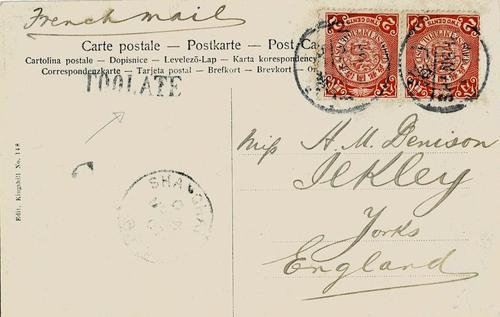 French mail
Carte postale — Postkarte — Post-Ca
Cartolina postale — Dopisnice — Levelező-Lap — Karta korespondency
Correspondenzkarte — Tarjeta postal — Brefkort — Brevkort
TOO LATE
2 TWO CENTS 2
2 TWO CENTS 2
SHANGHAI
Miss H. M. Denison
Ilkley
Yorks
England
Edit. Kingshill No. 148